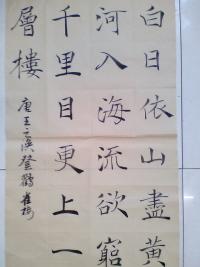 白日依山盡黄
河入海流欲窮
千里目更上一
層樓
唐王之渙登鸛雀樓